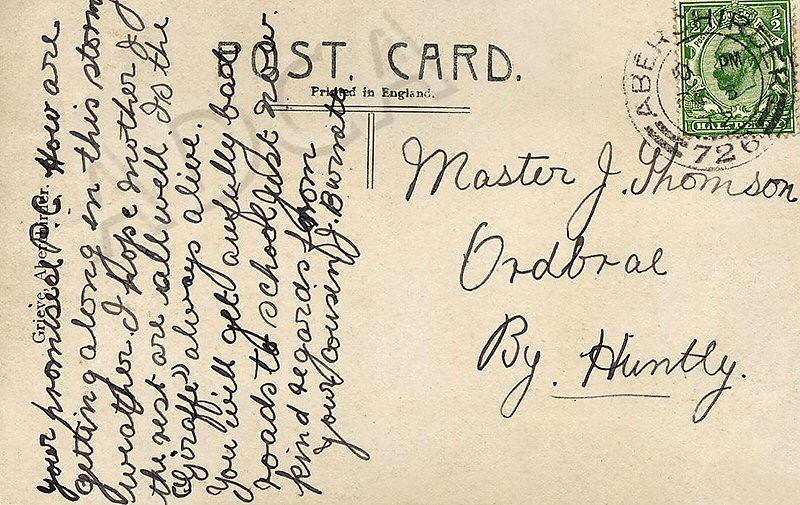 POST CARD.
Printed in England.
Grieve, Aberchirder.
your promised P.C. How are
getting along in this storm
weather. I hope mother &
the rest are all well. Is the
"Giraffe" always alive.
You will get awfully bad
roads to school just now.
kind regards from
your cousin J. Burnett
Master J. Thomson
Ordbrae
By. Huntly.
ABERCHIRDER
PM
726
HALFPENNY